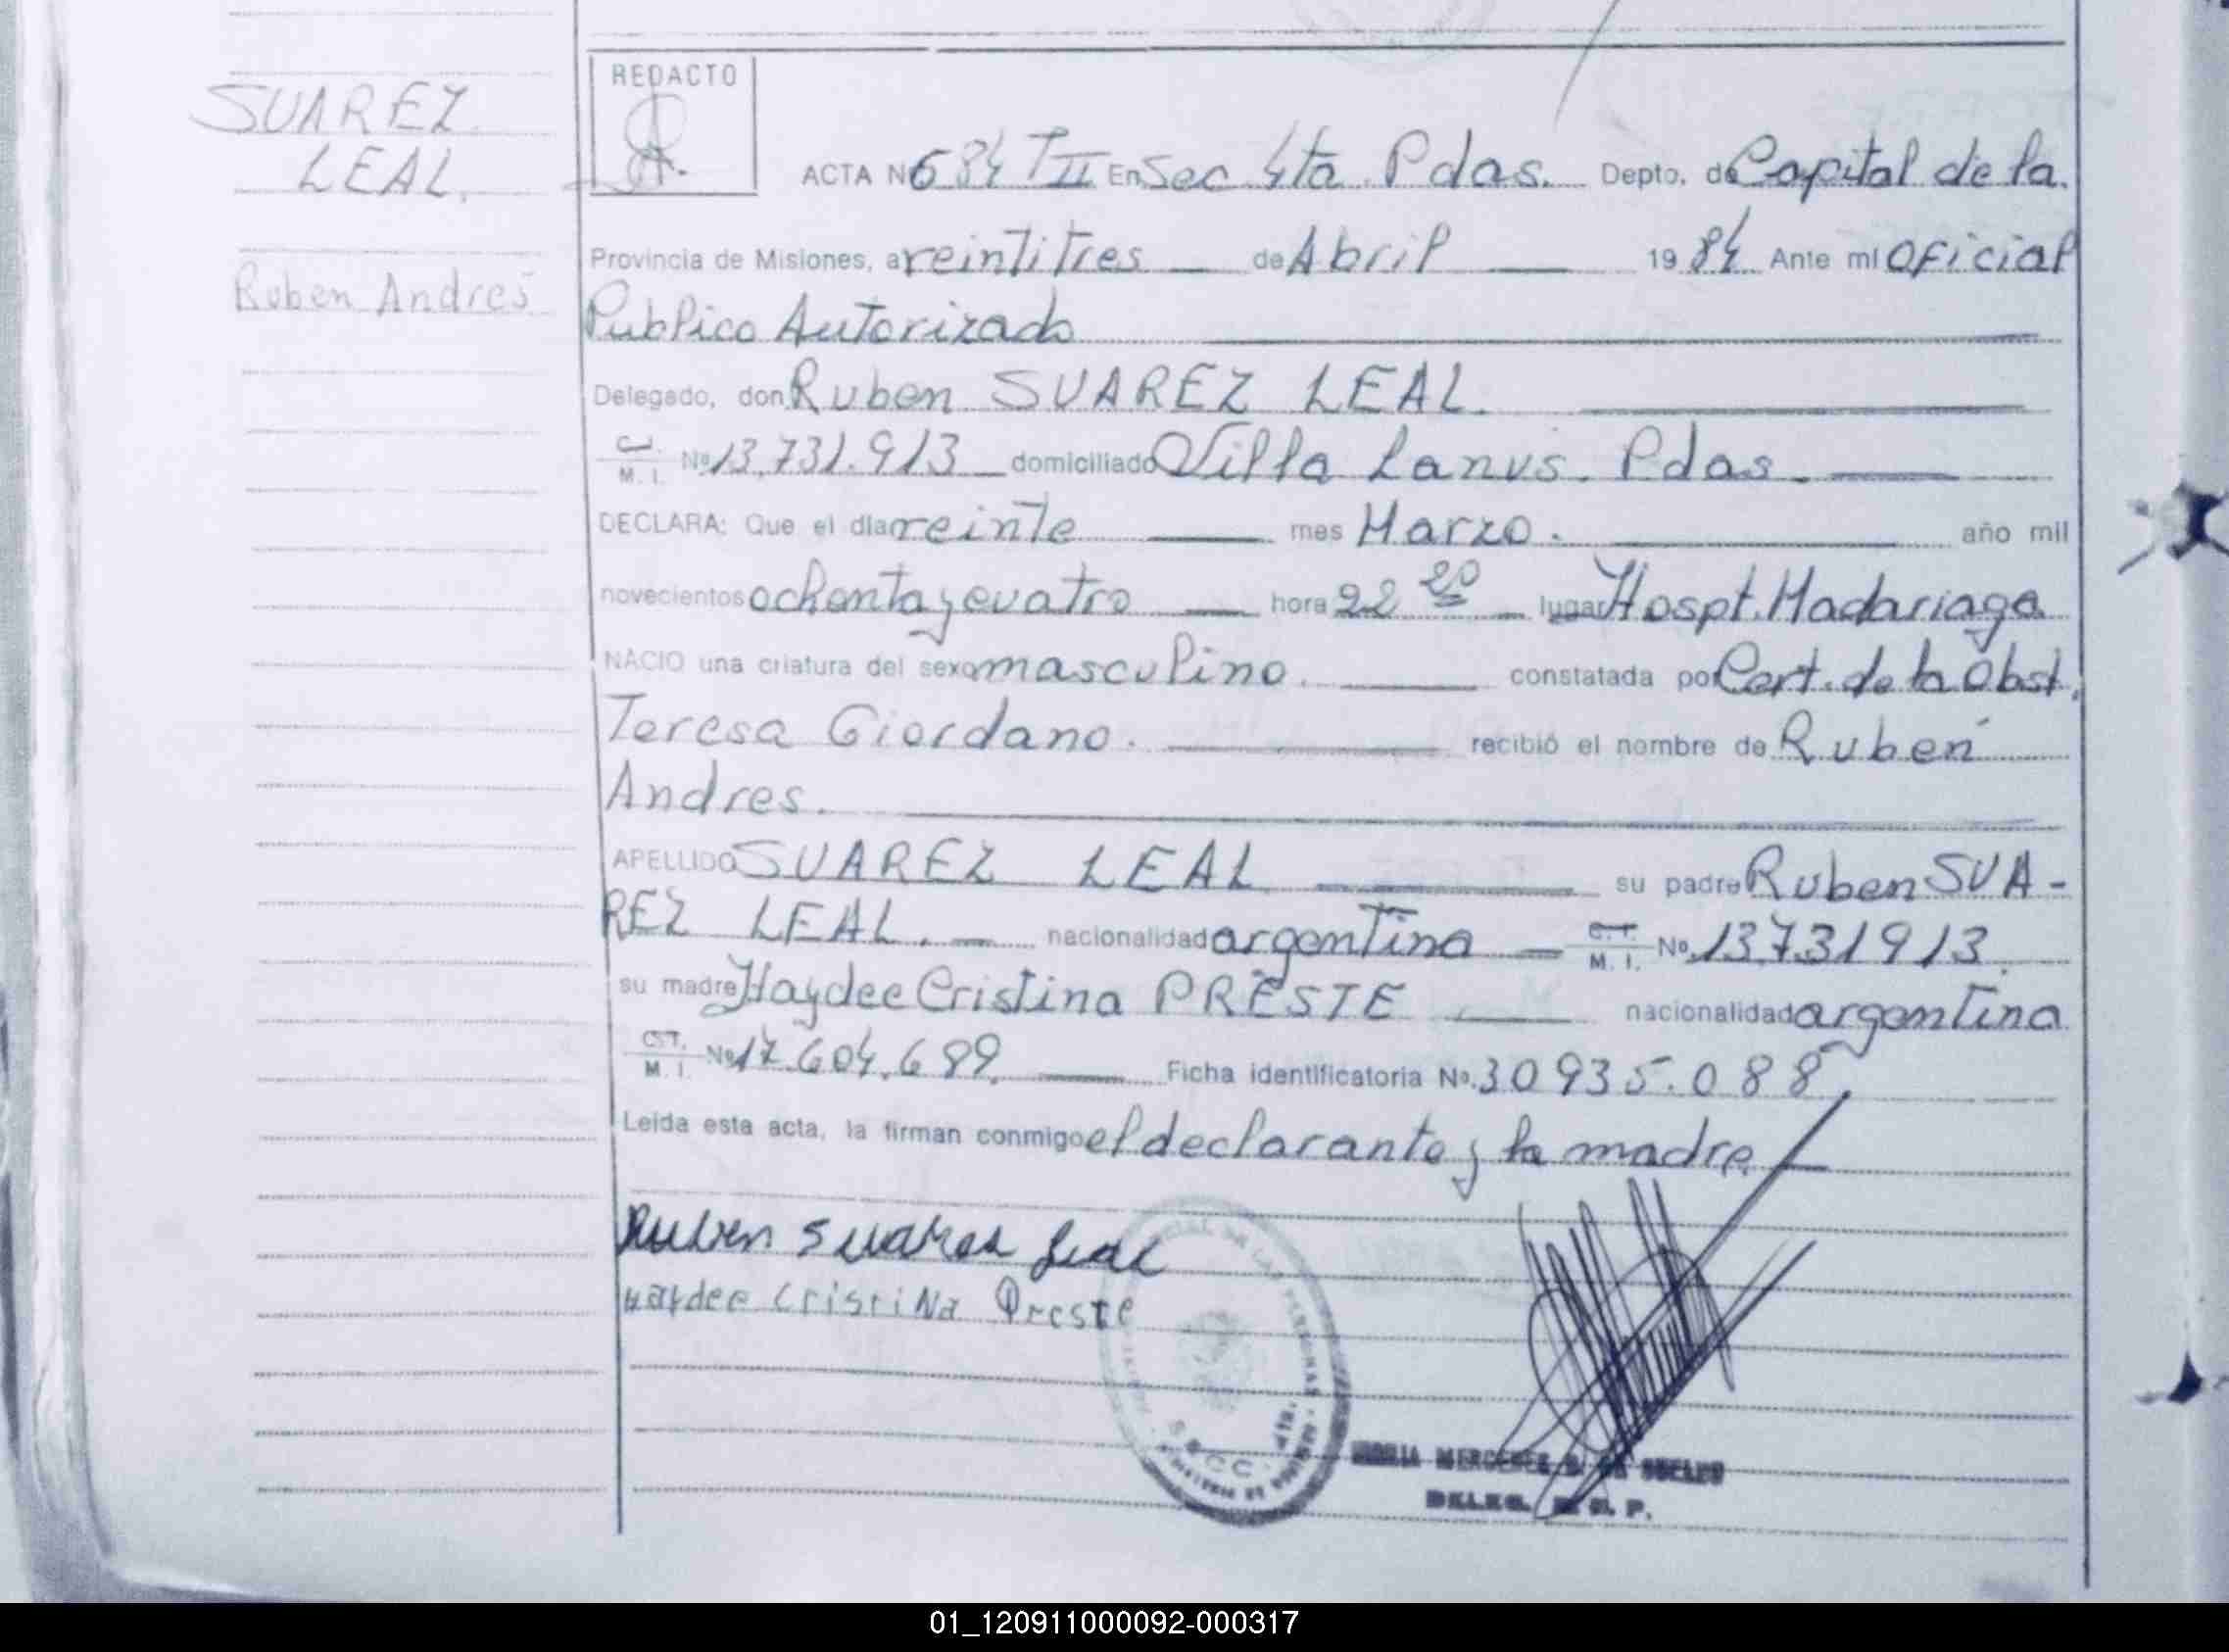 SUAREZ
LEAL.
Ruben Andres
REDACTO
ACTA Nº 684 TII En Sec 4ta. Pdas. Depto. de Capital de la
Provincia de Misiones, a veintitres de Abril 1984 Ante mi Oficial
Publico Autorizado
Delegado, don Ruben SUAREZ LEAL.
C.I. M. I. Nº 13.731.913 domiciliado Villa Lanus. Pdas.
DECLARA: Que el dia veinte mes Marzo. año mil
novecientos ochenta y cuatro hora 22 20 lugar Hospt. Madariaga
NACIO una criatura del sexo masculino. constatada por Cert. de la Obst.
Teresa Giordano. recibió el nombre de Ruben
Andres.
APELLIDO SUAREZ LEAL su padre Ruben SUA-
REZ LEAL. nacionalidad argentina M. I. Nº 13.731913.
su madre Haydee Cristina PRESTE nacionalidad argentina
M. I. Nº 17.604.689. Ficha identificatoria Nº. 30935.088
Leida esta acta, la firman conmigo el declarante y la madre
Ruben Suarez Leal
Haydee Cristina Preste
DE LAS PERSONAS
MERCEDES
DELEG. P.
01_120911000092-000317